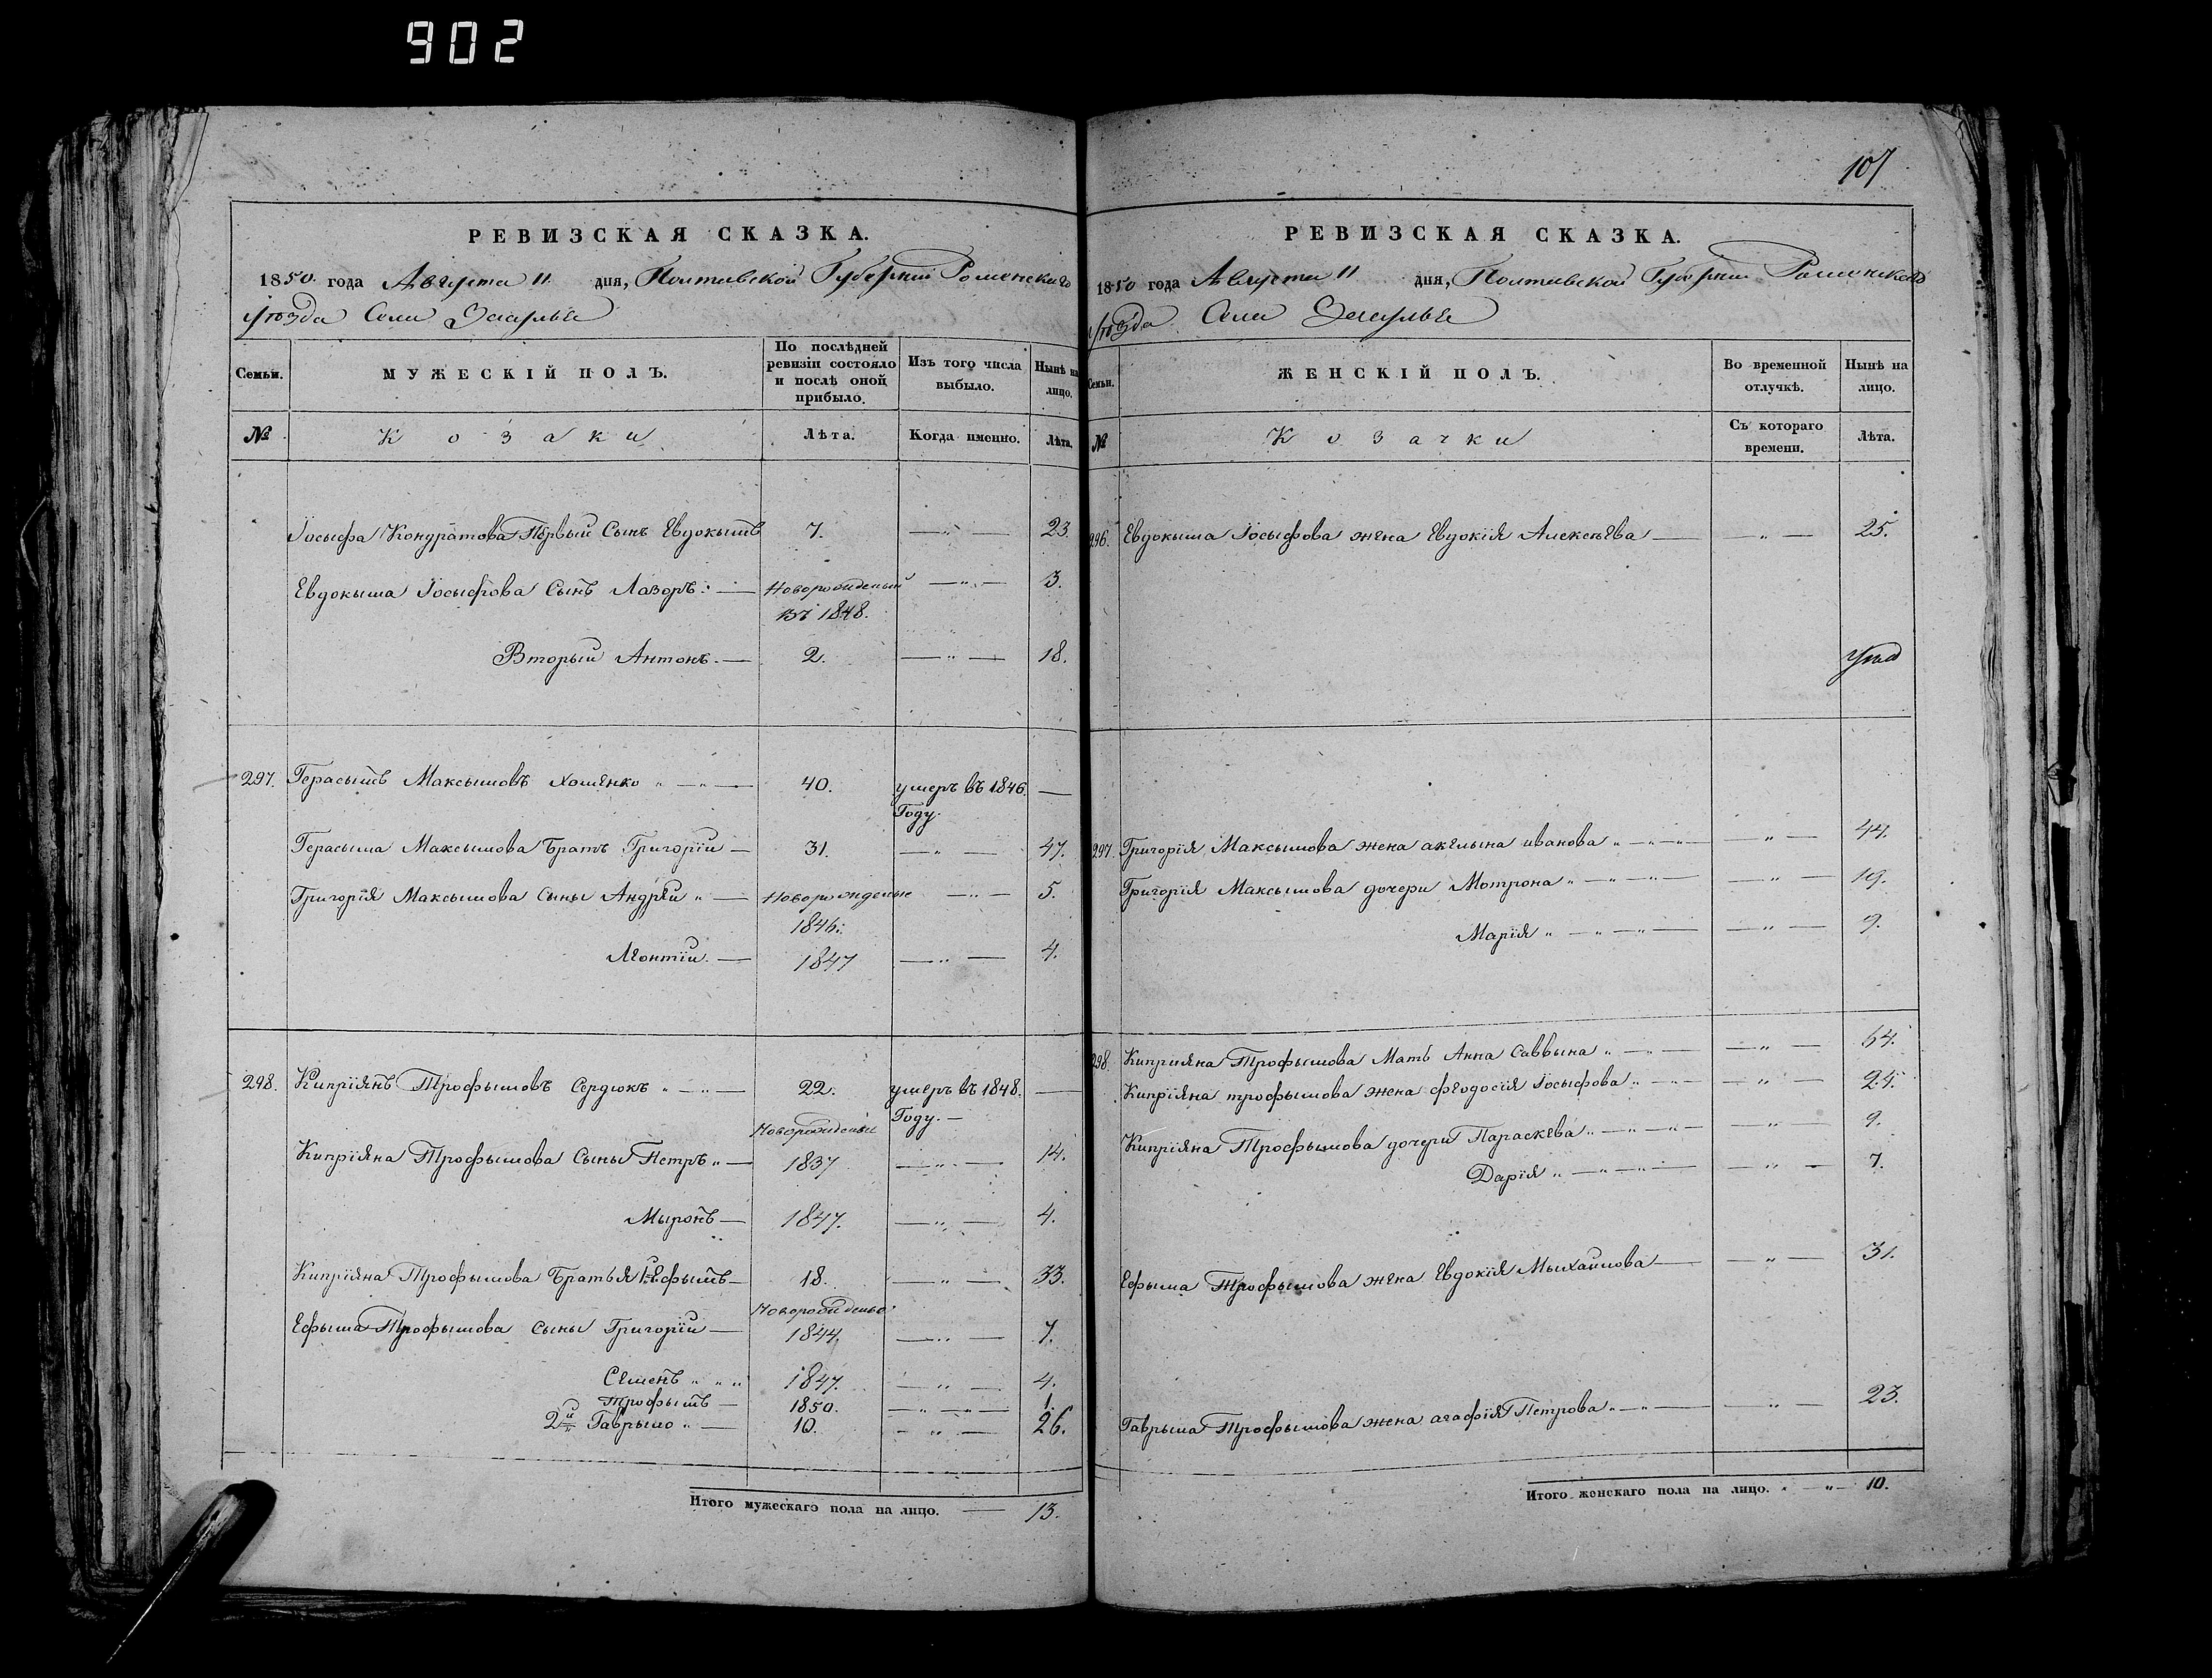 902
107
РЕВИЗСКАЯ СКАЗКА.
1850 года Августа 11 дня, Полтавской Губерніи Роменскаго
уѣзда Села Засулья
Семьи.
МУЖЕСКІЙ ПОЛЪ.
По послѣдней ревизіи состояло и послѣ оной прибыло.
Изъ того числа выбыло.
Нынѣ на лицо.
№
Козаки
Лѣта.
Когда именно.
Лѣта.
Іосыфа Кондратова Первый Сынъ Евдокымъ 7. —„— 23.
Евдокыма Іосыфова Сынъ Лазоръ: — Новорожденый —„— 3.
въ 1848.
Вторый Антонъ. — 2. —„— 18.
297. Герасымъ Максымовъ Хоменко „ —„— 40. умеръ въ 1846. —
Году.
Герасыма Максымова Братъ Григорій — 31. —„— 47.
Григорія Максымова Сыны Андрей „ — Новорожденые —„— 5.
1846.
Леонтій. — 1847 —„— 4.
298. Кипріянъ Трофымовъ Сердюкъ „ —„— 22. умеръ въ 1848. —
Году. —
Новорожденые
Кипріяна Трофымова Сыны Петръ „ — 1837 —„— 14.
Мыронъ — 1847. —„— 4.
Кипріяна Трофымова Братья 1й Ефымъ — 18. —„— 33.
Новорожденые
Ефыма Трофымова Сыны Григорій — 1844. —„— 7.
Семенъ „ „ „ 1847. —„— 4.
Трофымъ — 1850. —„—„— 1.
2й Гаврыло „ — 10. —„— 26.
Итого мужескаго пола на лицо. — 13.
РЕВИЗСКАЯ СКАЗКА.
1850 года Августа 11 дня, Полтавской Губерніи Роменскаго
уѣзда Села Засулья
Семьи.
ЖЕНСКІЙ ПОЛЪ.
Во временной отлучкѣ.
Нынѣ на лицо.
№
Козачки
Съ котораго времени.
Лѣта.
296. Евдокыма Іосыфова жена Евдокія Алексѣева — —„— 25.
297. Григорія Максымова жена акелына иванова „ —„—„— —„— 44.
Григорія Максымова дочери Мотрона „ —„—„— —„— 19.
Марія „ —„—„— —„— 9.
298. Киприяна Трофымова Мать Анна Саввына „ —„— —„— 64.
Кипріяна трофымова жена феодосія Іосыфова „ —„— —„— 24.
Кипріяна Трофымова дочери Параскева „ —„—„— —„— 9.
Дарія „ —„—„— —„— 7.
Ефыма Трофымова жена Евдокія Мыхайлова — —„— 31.
Гаврыла Трофымова жена агафія Петрова „ —„— —„— 23.
Итого женскаго пола на лицо. „ —„— 10.